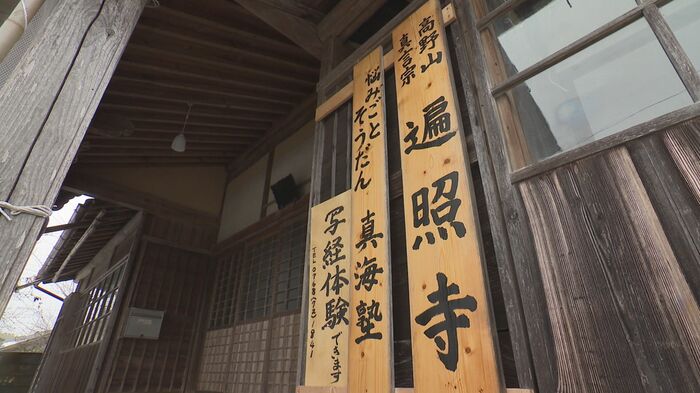 高野山
真言宗
遍照寺
悩みごと
そうだん
真海塾
写経体験できます
TEL 0768(72)1841